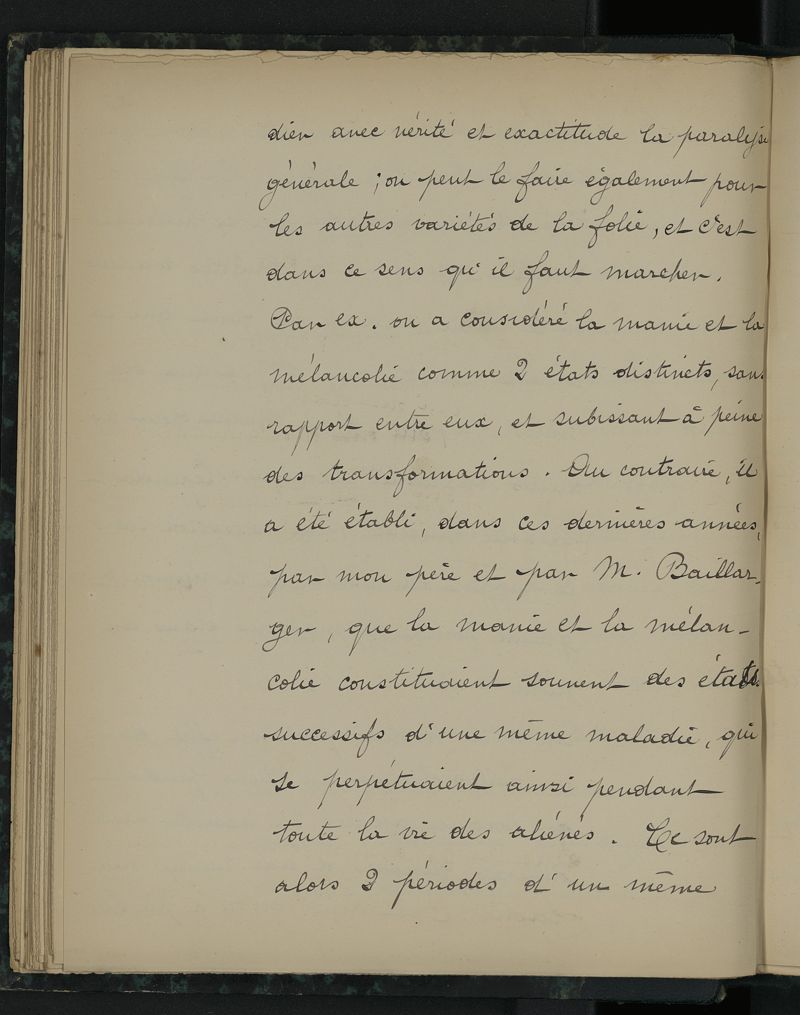 dier avec vérité et exactitude la paralysie
générale ; on peut le faire également pour
les autres variétés de la folie, et c'est
dans ce sens qu'il faut marcher.
Par ex. on a considéré la manie et la
mélancolie comme 2 états distincts, sans
rapport entre eux, et subissant à peine
des transformations. Au contraire, il
a été établi, dans ces dernières années,
par mon père et par M. Baillar-
ger, que la manie et la mélan-
colie constituaient souvent des états
successifs d'une même maladie, qui
se perpétuaient ainsi pendant
toute la vie des aliénés. Ce sont
alors 2 périodes d'un même